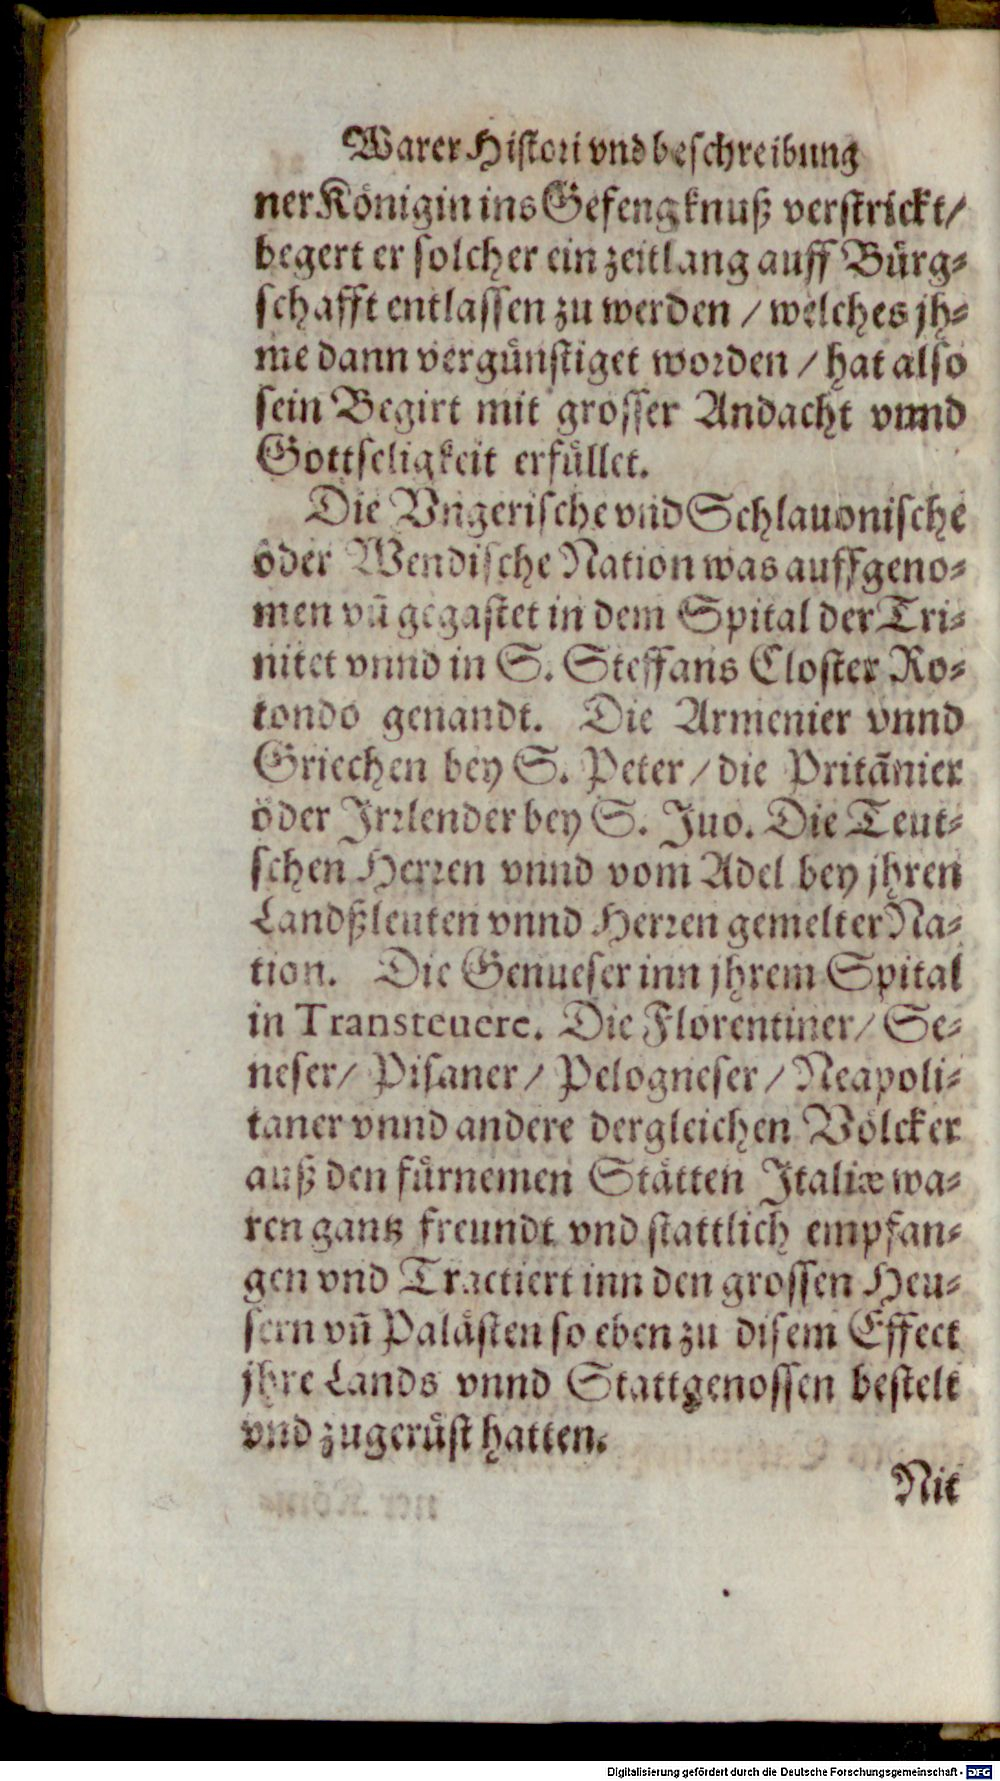 Warer Histori vnd beschreibung
ner Königin ins Gefengknuß verstrickt/
begert er solcher ein zeitlang auff Bürg-
schafft entlassen zu werden / welches jh-
me dann vergünstiget worden / hat also
sein Begirt mit grosser Andacht vnnd
Gottseligkeit erfüllet.
Die Vngerische vnd Schlauonische
oder Wendische Nation was auffgeno-
men vñ gegastet in dem Spital der Tri-
nitet vnnd in S. Steffans Closter Ro-
tondo genandt. Die Armenier vnnd
Griechen bey S. Peter / die Pritãnier
oder Irrlender bey S. Juo. Die Teut-
schen Herren vnnd vom Adel bey jhren
Landßleuten vnnd Herren gemelter Na-
tion. Die Genueser inn jhrem Spital
in Transteuere. Die Florentiner/ Se-
neser/ Pisaner / Pelogneser / Neapoli-
taner vnnd andere dergleichen Völcker
auß den fürnemen Stätten Italiæ wa-
ren gantz freundt vnd stattlich empfan-
gen vnd Tractiert inn den grossen Heu-
sern vñ Palästen so eben zu disem Effect
jhre Lands vnnd Stattgenossen bestelt
vnd zugerüst hatten.
Nit
Digitalisierung gefördert durch die Deutsche Forschungsgemeinschaft - DFG